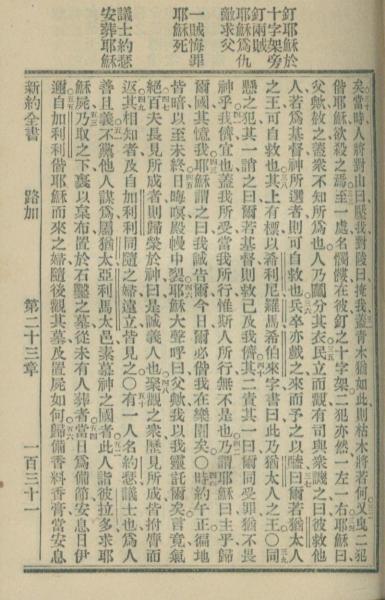 釘耶穌於
十字架旁
釘兩賊
耶穌爲仇
敵求父
一賊悔罪
耶穌死
議士約瑟
安葬耶穌
矣時人將對山曰壓我對陵曰掩我蓋青木猶如此則枯木將若何又曳二犯
偕耶穌欲殺之焉至一處名髑髏在彼釘之十字架二犯亦然一左一右耶穌曰
父歟赦之蓋衆不知所爲也人乃鬮分其衣民立而觀有司與衆譏之曰彼救他
人若爲基督神所選者則可自救也兵卒亦戲之來而予之以醯曰爾若猶太人
之王可自救也其上有標以希利尼羅馬希伯來字書曰此乃猶太人之王〇同
懸之犯其一誚之曰爾若基督則救己及我儕其二責其一曰爾同受罪猶不畏
神乎我儕宜也蓋我所受當我所行惟斯人所行無不是也乃謂耶穌曰主乎歸
爾國其憶我耶穌謂之曰我誠告爾今日爾必偕我在樂園矣〇時約午正徧地
皆暗以至未終日晦暝殿幔中裂耶穌大聲呼曰父歟我以我靈託爾矣言竟氣
絕百夫長見所成者則歸榮於神曰是誠義人也衆觀之衆歷見所成皆拊膺而
返其相知者及自加利利同隨之婦遠立皆見之〇有一人名約瑟議士也爲人
善且義不黨他人謀爲屬猶太亞利馬太邑素慕神之國者此人詣彼拉多求耶
穌屍乃取之下裹以枲布置於石鑿之墓從未有人葬者當日爲備節安息日伊
邇自加利利偕耶穌而來之婦隨後觀其墓及置屍如何歸備香料香膏當安息
新約全書 路加 第二十三章 一百三十一